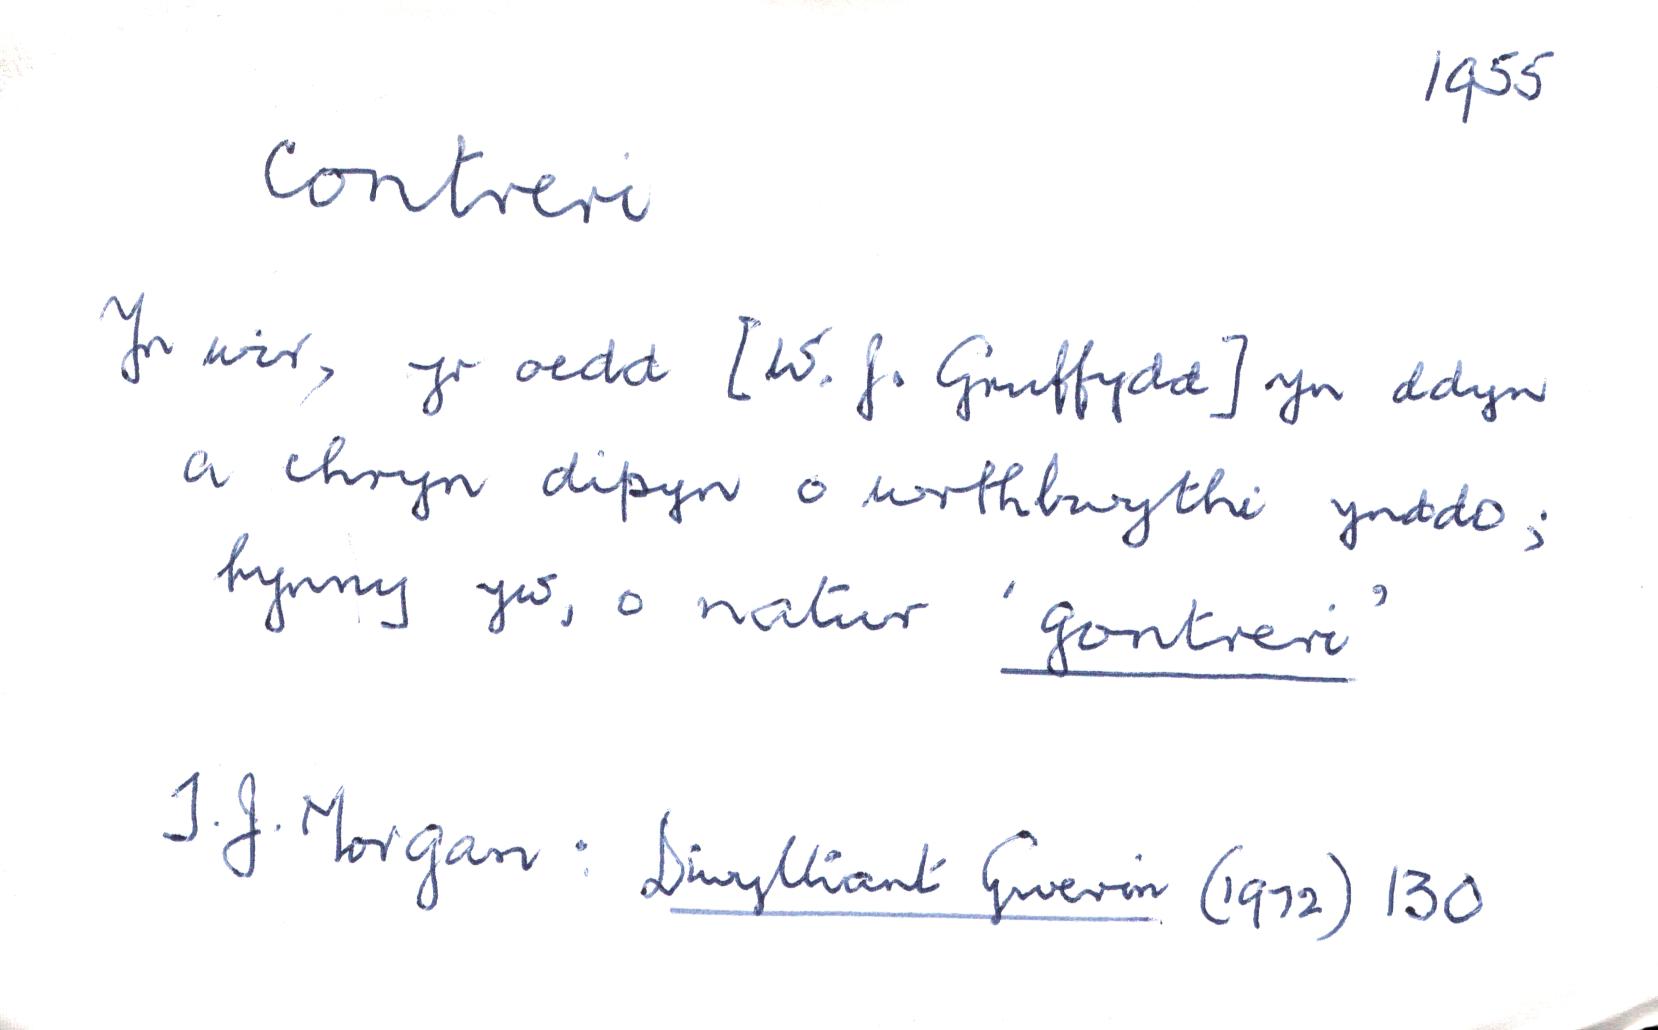 1955
Contreri
Yn wir, yr oedd [W. J. Gruffydd] yn ddyn
a chryn dipyn o wrthbwythi ynddo;
hynny yw, o natur 'gontreri'
T. J. Morgan : Diwylliant Gwerin (1972) 130